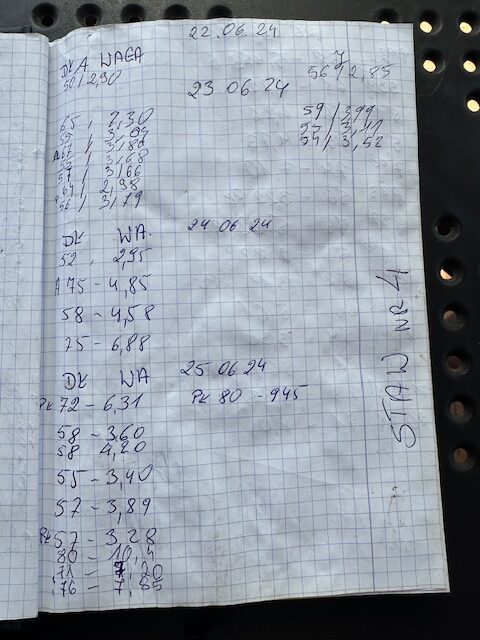 22.06.24
DŁ A WAGA
50/2,90
56 / 2,85
23 06 24
65, 7,30
59 / 2,99
57 / 3,41
54 / 3,52
57 / 3,66
64 / 2,98
56 / 3,79
DŁ WA. 24 06 24
52, 2,95
A 75 - 4,85
58 - 4,58
75 - 6,88
DŁ WA 25 06 24
PŁ 72 - 6,31
PŁ 80 - 945
58 - 3,60
58 4,20
55 - 3,40
57 - 3,89
PŁ 57 - 3,28
80 - 10,4
71 - 7,20
76 - 7,85
STAW NR 4